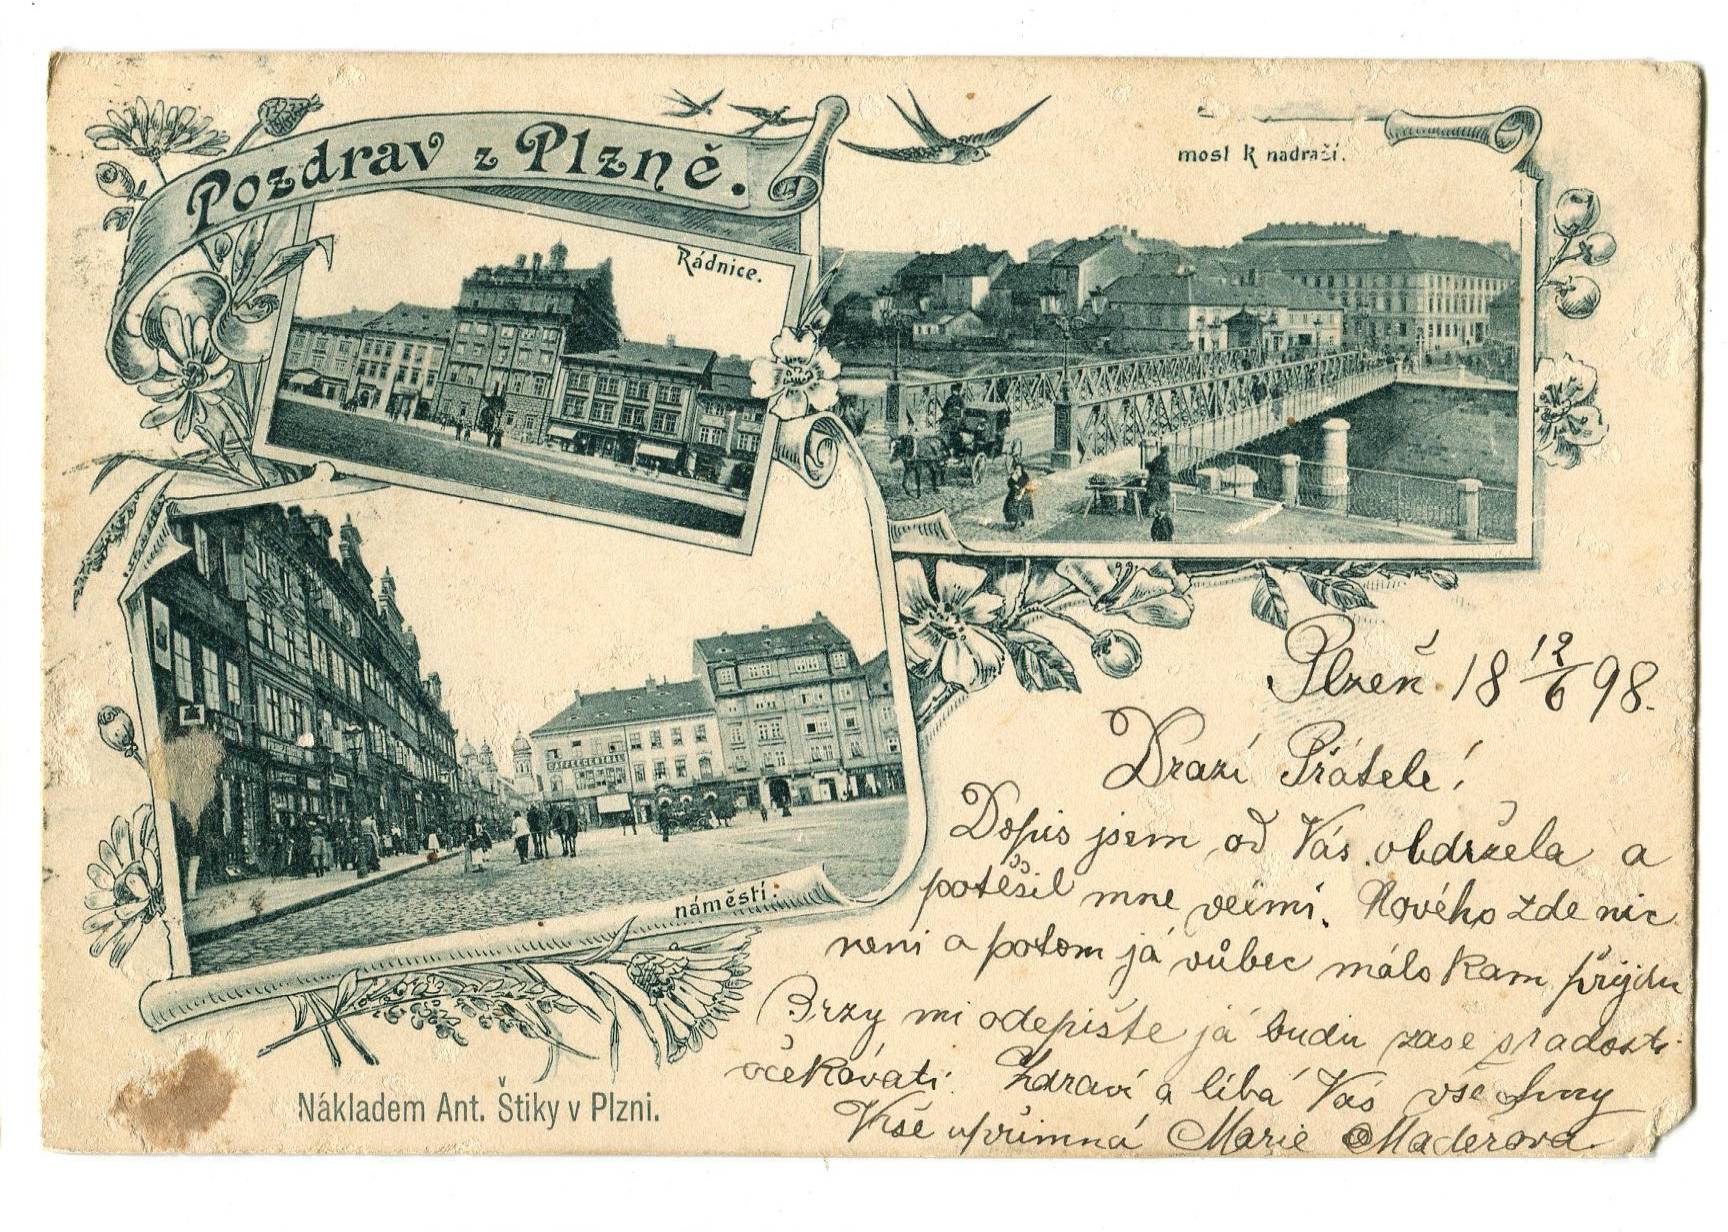 Pozdrav z Plzně.
Rádnice.
most k nadraží.
CAFFÉ CENTRAL
náměstí.
Plzeň 18 12/6 98.
Drazí Přátelé!
Dopis jsem od Vás obdržela a
potěšil mne velmi. Nového zde nic
neni a potom já vůbec málo kam přijdu
Brzy mi odepište já budu zase s radosti
očekávati. Zdraví a líbá Vás všechny
Vaše upřímná Marie Maderova
Nákladem Ant. Štiky v Plzni.